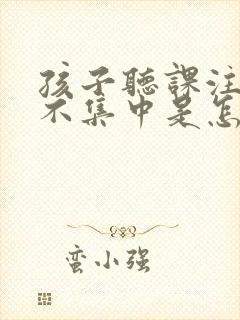 孩子聽課注
不集中是怎
蛮小强